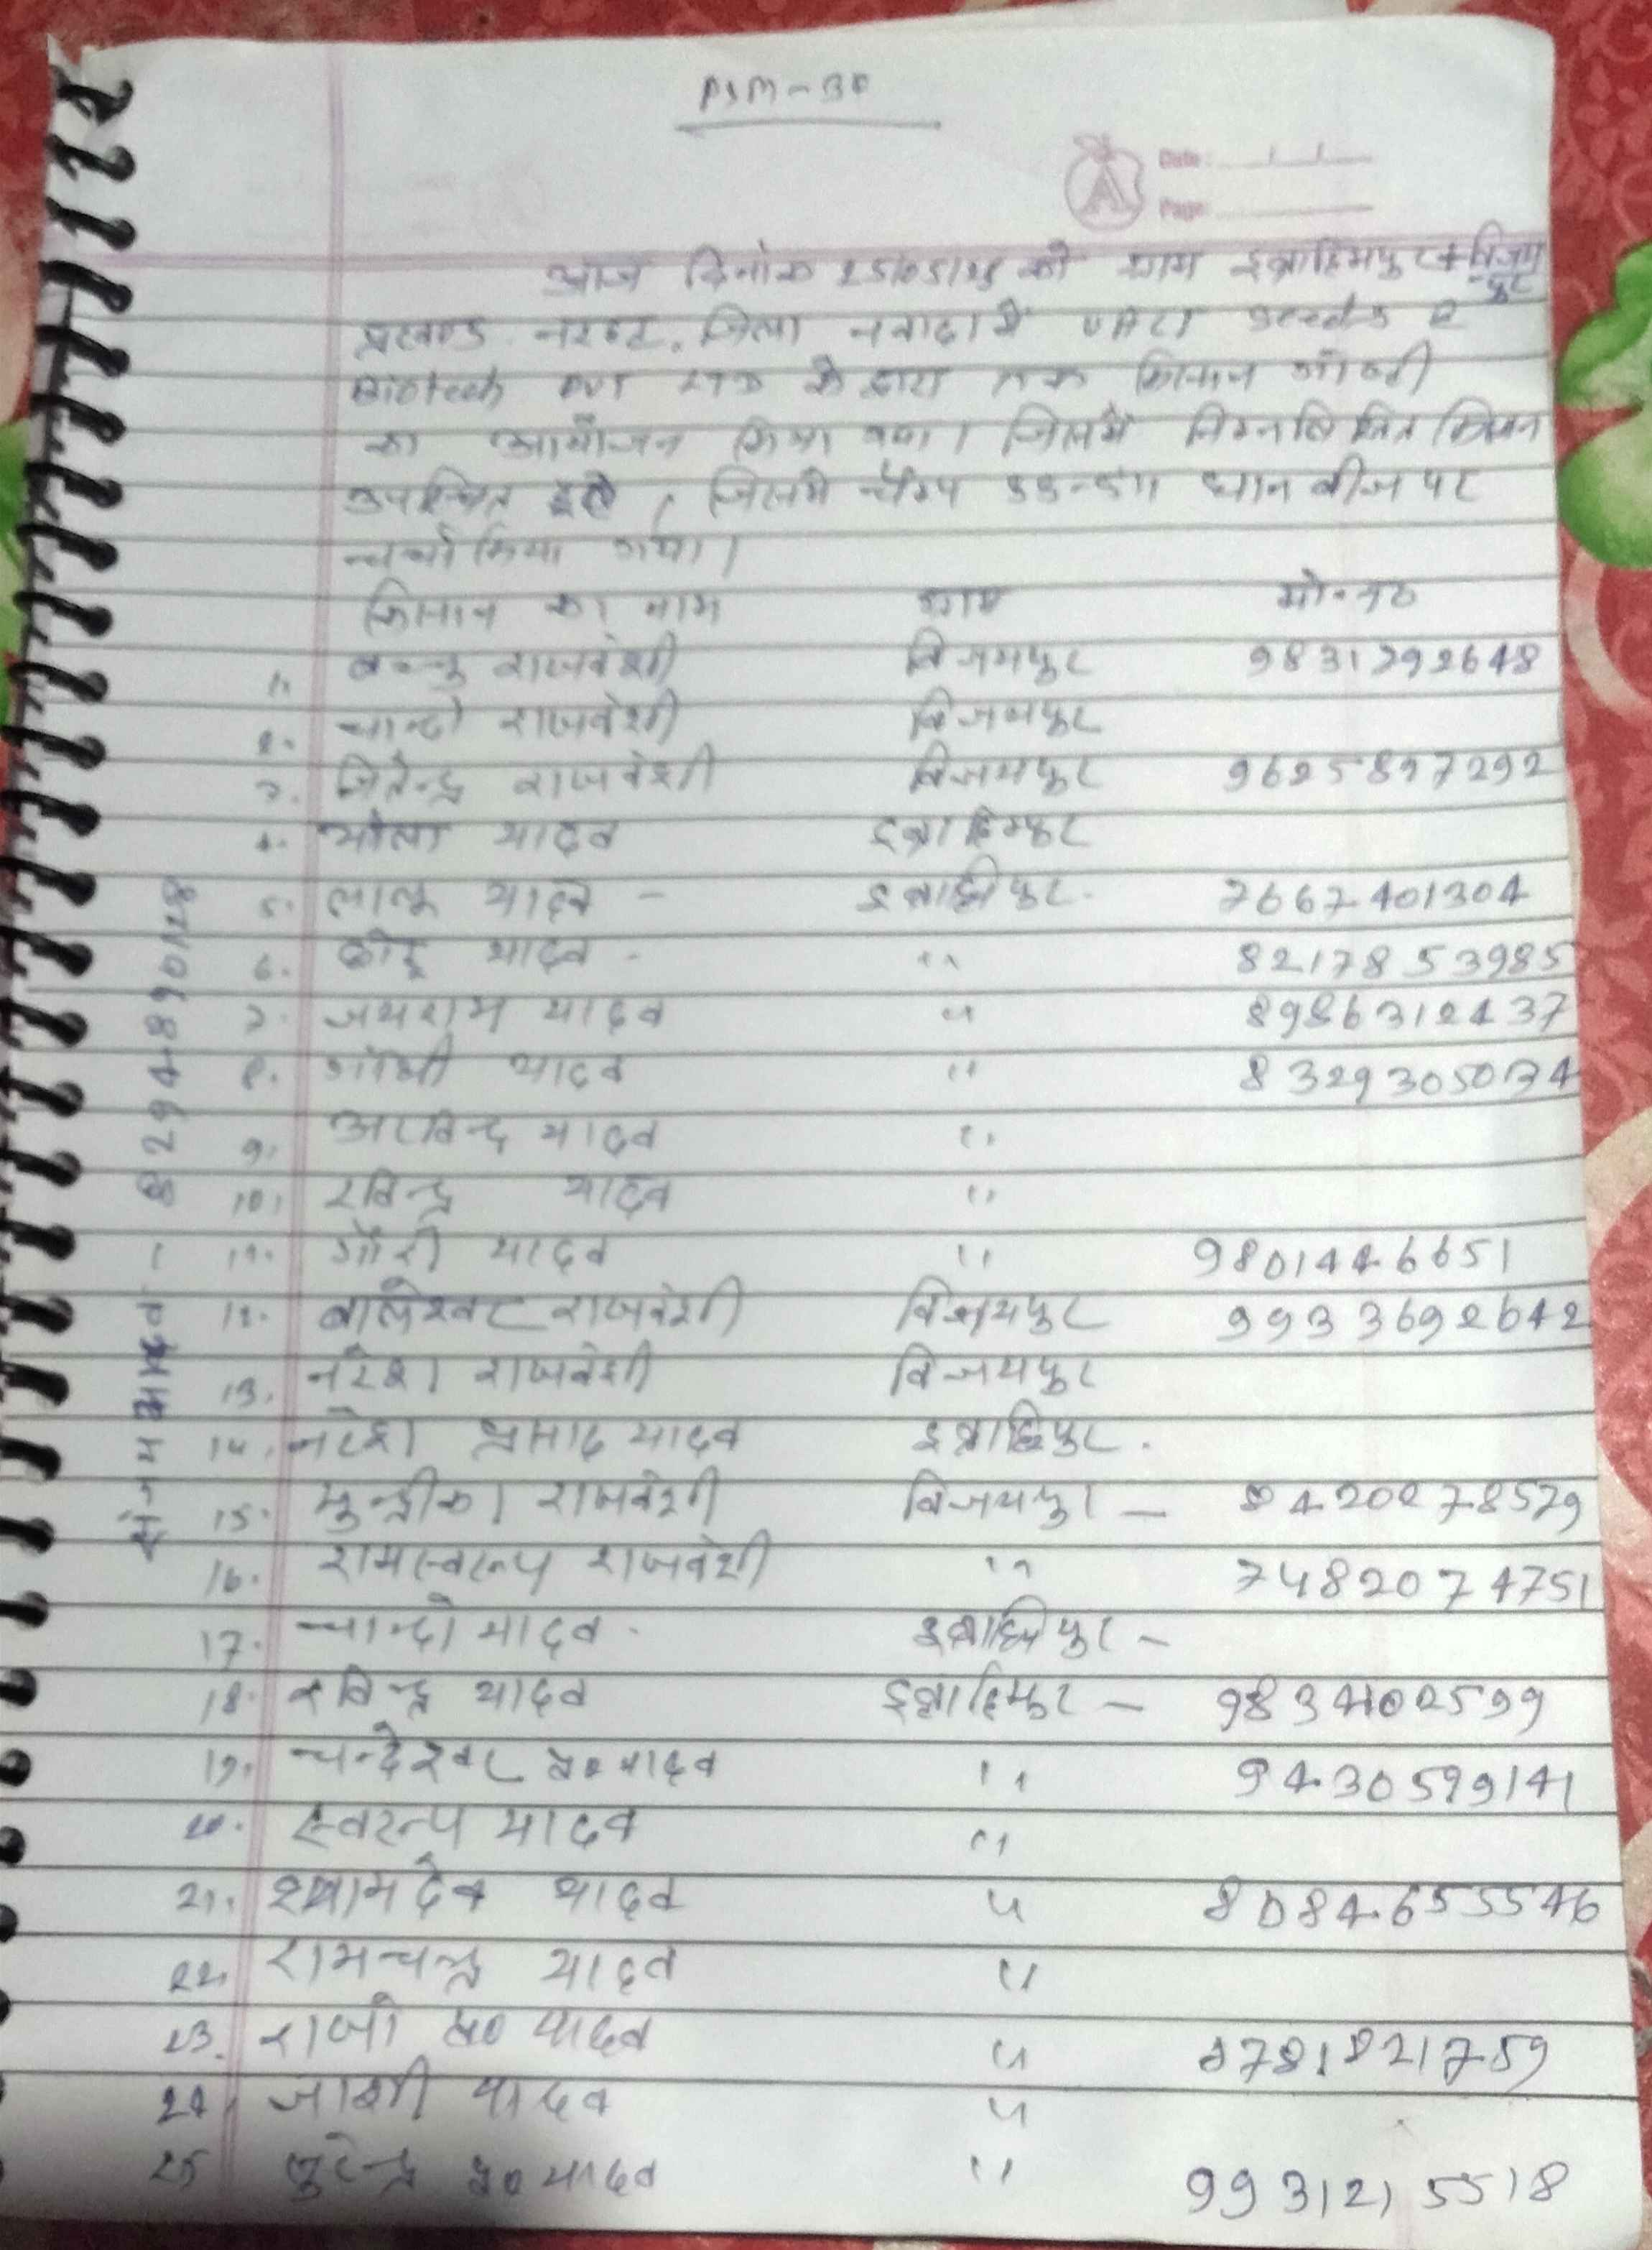 PSM-
Date:
Page:
आज दिनांक 25/05/25 को ग्राम इब्राहिमपुर + विजय
-पुर
प्रखण्ड नरहट, जिला नवादा में Seeds &
Biotech PVT LTD के द्वारा एक किसान गोष्ठी
का आयोजन किया गया। जिसमें निम्नलिखित किसान
उपस्थित हुए, जिसमें धान बीज पर
चर्चा किया गया।
किसान का नाम ग्राम मो॰ न०
1. राजवंशी विजयपुर 9831292648
2. चान्दो राजवंशी विजयपुर
3. जितेन्द्र राजवंशी विजयपुर 9625897292
4. भोला यादव इब्राहिमपुर
5. लालू यादव - इब्राहिमपुर. 7667401304
6. छोटू यादव - " 8217853985
7. जयराम यादव " 8986312437
8. यादव " 8329305034
9. अरविन्द यादव "
10. रविन्द्र यादव "
11. गौरी यादव " 9801446651
12. बालेश्वर राजवंशी विजयपुर 9933692642
13. नरेश राजवंशी विजयपुर
14. नरेश प्रसाद यादव इब्राहिमपुर.
15. मुन्द्रीका राजवंशी विजयपुर -
16. रामस्वरूप राजवंशी " 7482074751
17. चान्दो यादव - इब्राहिमपुर -
18. रविन्द्र यादव इब्राहिमपुर -
19. चन्देश्वर प्र० यादव " 9430599141
20. स्वरूप यादव "
21. श्यामदेव यादव " 8084655546
22. रामचन्द्र यादव "
23. राजो प्र० यादव "
24. यादव "
25 सुरेन्द्र प्र० यादव " 9931215518
संजय यादव - 8294890128